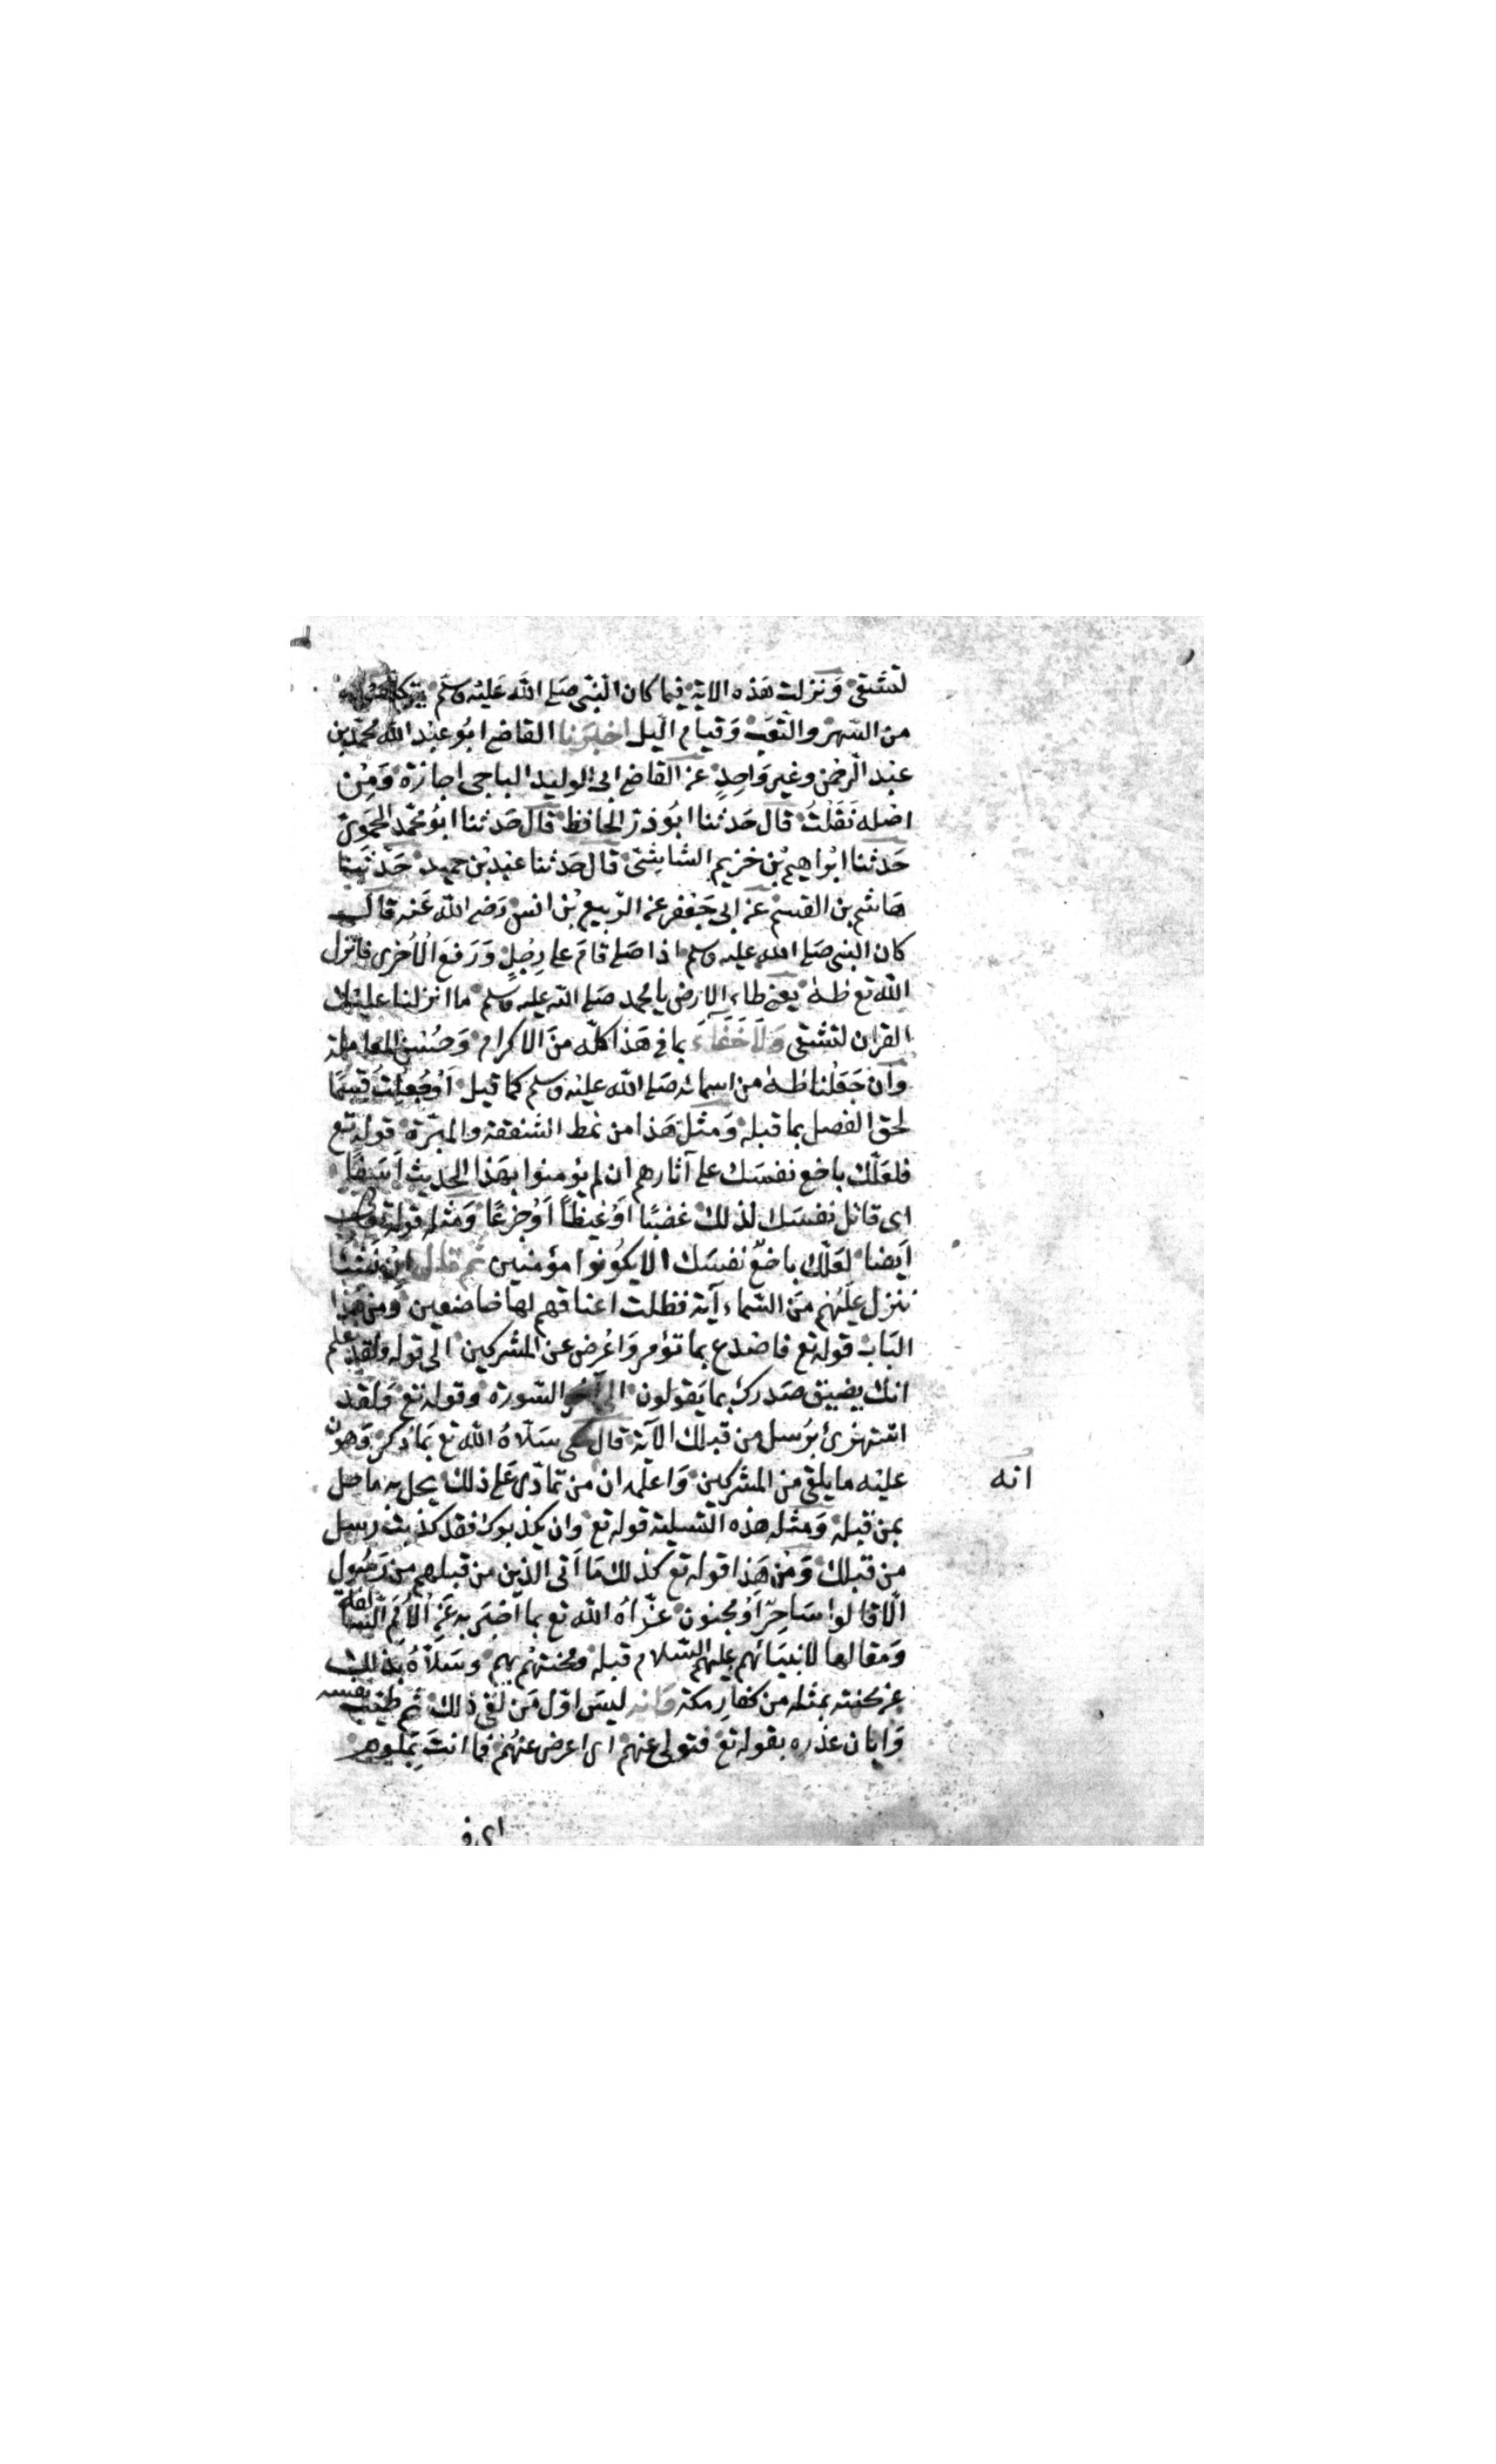 لتشقى وَنزلت هَذه الاية فيما كان النّبى صَلى اللّه عَليْه وسَلم
من السّهر والتّعَب وَقيام الّيل اخبَرَنا القاضى ابُو عبْد اللّه محمّد بن
عبْد الرّحمٰن وغير وَاحِدٍ عن القاضى ابى الوليد الباجى اجازة وَمِنْ
اصْله نَقَلْتُ قال حَدثنا ابُو ذرّ الحافظ قال حَدثنا ابُو محمّد الحمَوىّ
حَدثنا ابْراهيم بْن خزيم الشاشِىّ قال حَدثنا عبْد بْن حميد حَدّثَنا
هَاشم بن القسم عن ابى جَعْفر عن الرّبيع بْن انس رَضى اللّه عَنه قالَ
كان النبى صَلى اللّه عليه وسلم اذا صَلى قامَ على رِجْلٍ وَرَفعَ الْاُخرى فانزل
اللّه تع طٰهٰ يعنى طاء الارض يا محمد صَلى اللّه عليه وسلم ما انزلنا عليْك
القران لتشقى وَلَا خَفَاءَ بما فى هَذا كلّه منَ الاكرام وَحسْن المعاملة
وان جَعَلْنا طٰهٰ من اسمائه صَلى اللّه عليْه وسلم كما قيل اَوْ جُعِلَتْ قَسَمًا
لحق الفصل بما قبله وَمثل هَذا من نمط الشفقة والمبَرّة قوله تع
فلعَلّك باخع نفسَك على آثارهم ان لم يؤمنوا بهَذا الحديث اَسَفًا
اى قاتل نفسَك لذلك غضبًا اوْ غيظاً اَوْ جزعًا وَمثله قوله تعالى
اَيضا لعَلّك باخعٌ نفسَك الا يكُونوا مؤمنين ثم قال اِنْ نَشَأْ
ننزل علَيْهم منَ السّماء آية فظلت اعناقهم لها خاضعين وَمن هَذا
البَاب قوله تع فاصْدع بما تؤمر وَاعْرض عن المشركين الى قوله ولقد نعلم
انك يضيق صَدرك بما يَقولون الى آخر السّورة وقوله تع وَلقد
اسْتهزئ برُسل من قبلك الآية قال مكى سَلّاهُ اللّه تع بمَا ذكر وَهوّن
عليْه ما يلقى من المشركين وَاعلمه ان من تمادَى عَلى ذلك يحل به ما حل
انه
بمن قبله وَمثله هذه التسلية قوله تع وان يكذبوك فقد كذبت رسل
من قبلك وَمنْ هَذا قوله تع كذلك مَا اَتى الذين من قبلهم من رَسُول
الّا قالوا سَاحِرٌ اَوْ مجنون عَزّاهُ اللّه تع بما اخبَر به عَن الْاُمَم السّالفة
وَمقالها لانبيَائهم عليهم السّلام قبله ومحنتهُم بهم وسَلّاهُ بذلك
عن محنته بمثله من كفارِ مكة وَانه ليسَ اوّل مَن لقى ذلك ثم طيّب نفسه
وَابان عذره بقوله تع فتولى عنهم اى اعرض عنهُم فما انتَ بملوم
اى فى